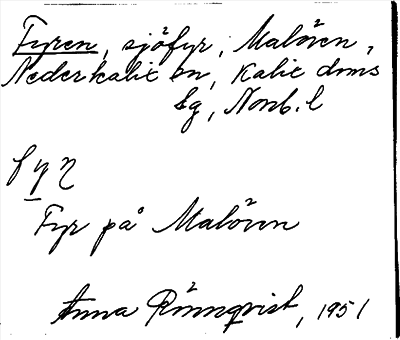 Fyren, sjöfyr, Malören,
Nederkalix sn, Kalix dms
lg, Norrb. l
fyr
Fyr på Malören
Anna Rönnqvist, 1951